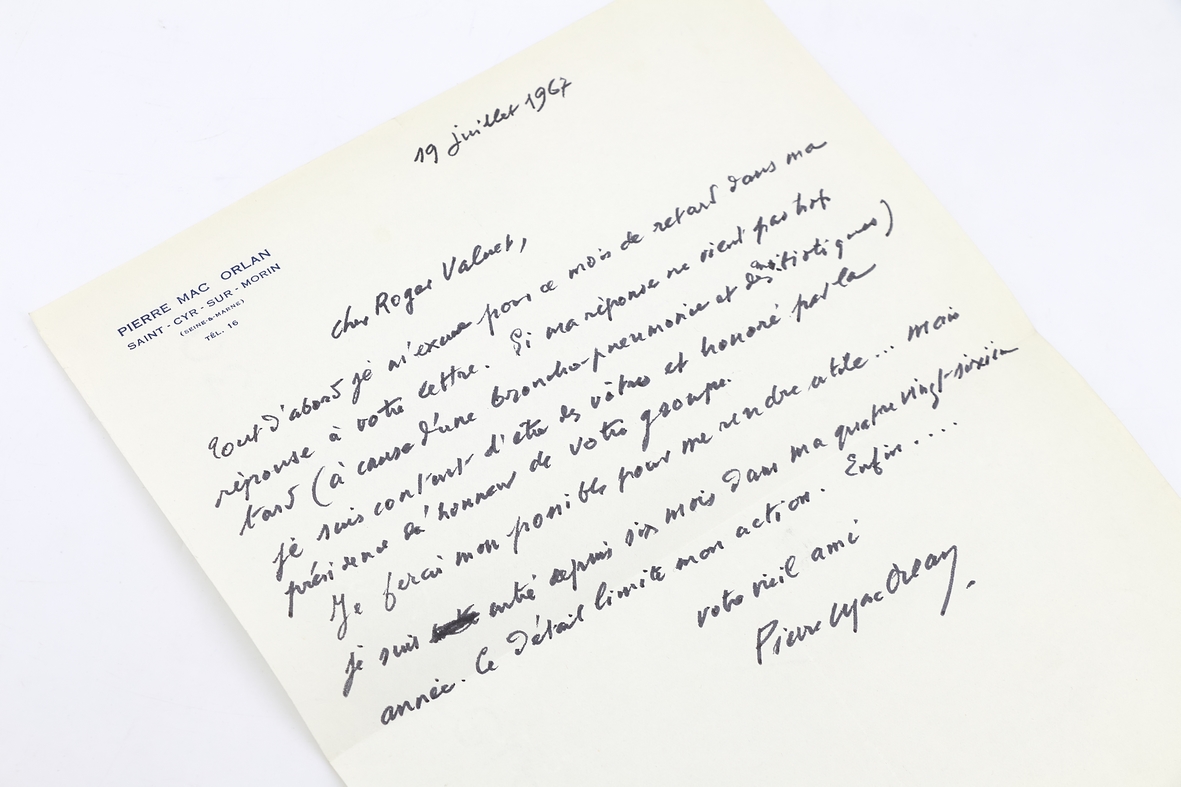 PIERRE MAC ORLAN
SAINT-CYR-SUR-MORIN
(SEINE-&-MARNE)
TÉL. 16
19 juillet 1967
cher Roger Valuet,
Tout d'abord je m'excuse pour ce mois de retard dans ma
réponse à votre lettre. Si ma réponse ne vient pas trop
tard (à cause d'une broncho-pneumonie et des)
je suis content d'être des vôtres et honoré par la
présidence d'honneur de votre groupe.
Je ferai mon possible pour me rendre utile... mais
je suis entré depuis six mois dans ma quatre vingt-sixième
année. Ce détail limite mon action. Enfin....
votre vieil ami
Pierre Mac Orlan.